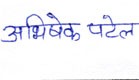 अभिषेक पटेल